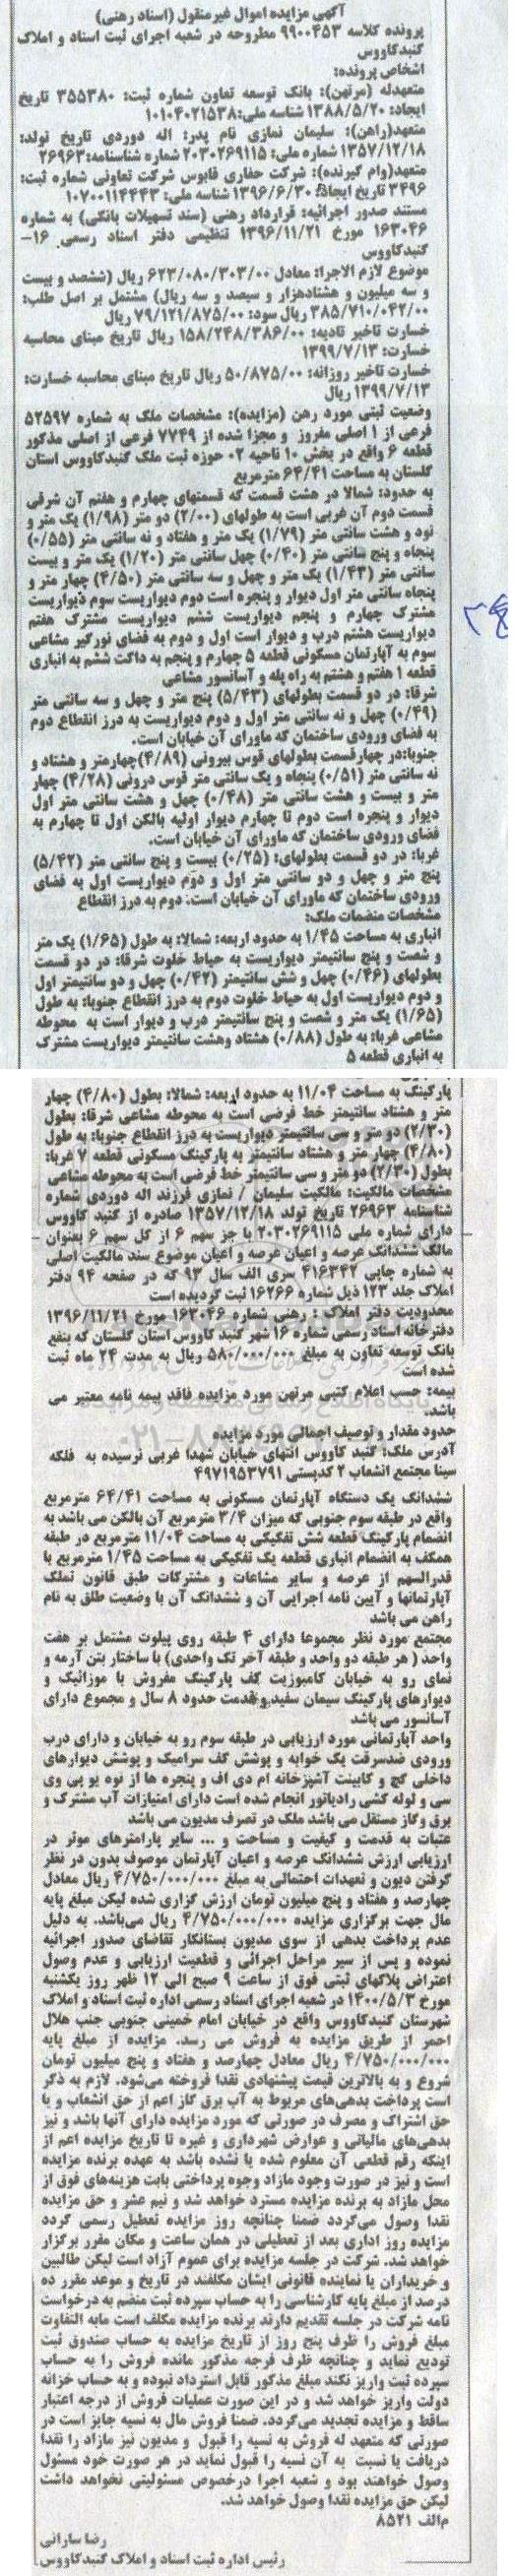 آگهی مزایده اموال غیرمنقول (اسناد رهنی)
پرونده کلاسه ۹۹۰۰۴۵۳ مطروحه در شعبه اجرای ثبت اسناد و املاک
گنبدکاووس
اشخاص پرونده:
متعهدله (مرتهن): بانک توسعه تعاون شماره ثبت: ۳۵۵۳۸۰ تاریخ
ایجاد: ۱۳۸۸/۵/۲۰ شناسه ملی: ۱۰۱۰۴۰۲۱۵۳۸
متعهد(راهن): سلیمان نمازی نام پدر: اله دوردی تاریخ تولد:
۱۳۵۷/۱۲/۱۸ شماره ملی: ۲۰۳۰۲۶۹۱۱۵ شماره شناسنامه: ۲۶۹۶۳
متعهد(وام گیرنده): شرکت حفاری قابوس شرکت تعاونی شماره ثبت:
۳۴۹۶ تاریخ ایجاد: ۱۳۹۶/۶/۳۰ شناسه ملی: ۱۰۷۰۰۱۱۴۴۴۳
مستند صدور اجرائیه: قرارداد رهنی (سند تسهیلات بانکی) به شماره
۱۶۳۰۴۶ مورخ ۱۳۹۶/۱۱/۲۱ تنظیمی دفتر اسناد رسمی ۱۶-
گنبدکاووس
موضوع لازم الاجرا: معادل ۶۲۳/۰۸۰/۳۰۳/۰۰ ریال (ششصد و بیست
و سه میلیون و هشتادهزار و سیصد و سه ریال) مشتمل بر اصل طلب:
۳۸۵/۷۱۰/۰۴۲/۰۰ ریال سود: ۷۹/۱۲۱/۸۷۵/۰۰ ریال
خسارت تاخیر تادیه: ۱۵۸/۲۴۸/۳۸۶/۰۰ ریال تاریخ مبنای محاسبه
خسارت: ۱۳۹۹/۷/۱۳
خسارت تاخیر روزانه: ۵۰/۸۷۵/۰۰ ریال تاریخ مبنای محاسبه خسارت:
۱۳۹۹/۷/۱۳ ریال
وضعیت ثبتی مورد رهن (مزایده): مشخصات ملک به شماره ۵۲۵۹۷
فرعی از ۱ اصلی مفروز و مجزا شده از ۷۷۴۹ فرعی از اصلی مذکور
قطعه ۶ واقع در بخش ۱۰ ناحیه ۰۲ حوزه ثبت ملک گنبدکاووس استان
گلستان به مساحت ۶۴/۴۱ مترمربع
به حدود: شمالا در هشت قسمت که قسمتهای چهارم و هفتم آن شرقی
قسمت دوم آن غربی است به طولهای (۲/۰۰) دو متر (۱/۹۸) یک متر و
نود و هشت سانتی متر (۱/۷۹) یک متر و هفتاد و نه سانتی متر (۰/۵۵)
پنجاه و پنج سانتی متر (۰/۴۰) چهل سانتی متر (۱/۲۰) یک متر و بیست
سانتی متر (۱/۴۳) یک متر و چهل و سه سانتی متر (۴/۵۰) چهار متر و
پنجاه سانتی متر اول دیوار و پنجره است دوم دیواریست سوم دیواریست
مشترک چهارم و پنجم دیواریست ششم دیواریست مشترک هفتم
دیواریست هشتم درب و دیوار است اول و دوم به فضای نورگیر مشاعی
سوم به آپارتمان مسکونی قطعه ۵ چهارم و پنجم به داکت ششم به انباری
قطعه ۱ هفتم و هشتم به راه پله و آسانسور مشاعی
شرقا: در دو قسمت بطولهای (۵/۴۳) پنج متر و چهل و سه سانتی متر
(۰/۴۹) چهل و نه سانتی متر اول و دوم دیواریست به درز انقطاع دوم
به فضای ورودی ساختمان که ماورای آن خیابان است.
جنوبا: در چهارقسمت بطولهای قوس بیرونی (۴/۸۹) چهارمتر و هشتاد و
نه سانتی متر (۰/۵۱) پنجاه و یک سانتی متر قوس درونی (۴/۲۸) چهار
متر و بیست و هشت سانتی متر (۰/۴۸) چهل و هشت سانتی متر اول
دیوار و پنجره است دوم تا چهارم دیوار اولیه بالکن اول تا چهارم به
فضای ورودی ساختمان که ماورای آن خیابان است.
غربا: در دو قسمت بطولهای: (۰/۲۵) بیست و پنج سانتی متر (۵/۴۲)
پنج متر و چهل و دو سانتی متر اول و دوم دیواریست اول به فضای
ورودی ساختمان که ماورای آن خیابان است: دوم به درز انقطاع
مشخصات منضمات ملک:
انباری به مساحت ۱/۴۵ به حدود اربعه: شمالا: به طول (۱/۶۵) یک متر
و شصت و پنج سانتیمتر دیواریست به حیاط خلوت شرقا: در دو قسمت
بطولهای (۰/۴۶) چهل و شش سانتیمتر (۰/۴۲) چهل و دو سانتیمتر اول
و دوم دیواریست اول به حیاط خلوت دوم به درز انقطاع جنوبا: به طول
(۱/۶۵) یک متر و شصت و پنج سانتیمتر درب و دیوار است به محوطه
مشاعی غربا: به طول (۰/۸۸) هشتاد وهشت سانتیمتر دیواریست مشترک
به انباری قطعه ۵
پارکینگ به مساحت ۱۱/۰۴ به حدود اربعه: شمالا: بطول (۴/۸۰) چهار
متر و هشتاد سانتیمتر خط فرضی است به محوطه مشاعی شرقا: بطول
(۲/۳۰) دو متر و سی سانتیمتر دیواریست به درز انقطاع جنوبا: به طول
(۴/۸۰) چهار متر و هشتاد سانتیمتر به پارکینگ مسکونی قطعه ۷ غربا:
بطول (۲/۳۰) دو متر و سی سانتیمتر خط فرضی است به محوطه مشاعی
مشخصات مالکیت: مالکیت سلیمان / نمازی فرزند اله دوردی شماره
شناسنامه ۲۶۹۶۳ تاریخ تولد ۱۳۵۷/۱۲/۱۸ صادره از گنبد کاووس
دارای شماره ملی ۲۰۳۰۲۶۹۱۱۵ با جز سهم ۶ از کل سهم ۶ بعنوان
مالک ششدانگ عرصه و اعیان عرصه و اعیان موضوع سند مالکیت اصلی
به شماره چاپی ۴۱۶۳۴۲ سری الف سال ۹۳ که در صفحه ۹۴ دفتر
املاک جلد ۱۲۳ ذیل شماره ۱۶۲۶۶ ثبت گردیده است
محدودیت دفتر املاک: رهنی شماره ۱۶۳۰۴۶ مورخ ۱۳۹۶/۱۱/۲۱
دفترخانه اسناد رسمی شماره ۱۶ شهر گنبد کاووس استان گلستان که بنفع
بانک توسعه تعاون به مبلغ ۵۸۰/۰۰۰/۰۰۰ ریال به مدت ۲۴ ماه ثبت
شده است
بیمه: حسب اعلام کتبی مرتهن مورد مزایده فاقد بیمه نامه معتبر می
باشد.
حدود مقدار و توصیف اجمالی مورد مزایده
آدرس ملک: گنبد کاووس انتهای خیابان شهدا غربی نرسیده به فلکه
سینا مجتمع انشعاب ۲ کدپستی ۴۹۷۱۹۵۳۷۹۱
ششدانگ یک دستگاه آپارتمان مسکونی به مساحت ۶۴/۴۱ مترمربع
واقع در طبقه سوم جنوبی که میزان ۳/۴ مترمربع آن بالکن می باشد به
انضمام پارکینگ قطعه شش تفکیکی به مساحت ۱۱/۰۴ مترمربع در طبقه
همکف به انضمام انباری قطعه یک تفکیکی به مساحت ۱/۴۵ مترمربع با
قدرالسهم از عرصه و سایر مشاعات و مشترکات طبق قانون تملک
آپارتمانها و آیین نامه اجرایی آن و ششدانگ آن با وضعیت طلق به نام
راهن می باشد
مجتمع مورد نظر مجموعا دارای ۴ طبقه روی پیلوت مشتمل بر هفت
واحد ( هر طبقه دو واحد و طبقه آخر تک واحدی) با ساختار بتن آرمه و
نمای رو به خیابان کامپوزیت کف پارکینگ مفروش با موزائیک و
دیوارهای پارکینگ سیمان سفید و قدمت حدود ۸ سال و مجموع دارای
آسانسور می باشد
واحد آپارتمانی مورد ارزیابی در طبقه سوم رو به خیابان و دارای درب
ورودی ضدسرقت یک خوابه و پوشش کف سرامیک و پوشش دیوارهای
داخلی گچ و کابینت آشپزخانه ام دی اف و پنجره ها از نوع یو پی وی
سی و لوله کشی رادیاتور انجام شده است دارای امتیازات آب مشترک و
برق وگاز مستقل می باشد ملک در تصرف مدیون می باشد
عنیات به قدمت و کیفیت و مساحت و ... سایر پارامترهای موثر در
ارزیابی ارزش ششدانگ عرصه و اعیان آپارتمان موصوف بدون در نظر
گرفتن دیون و تعهدات احتمالی به مبلغ ۴/۷۵۰/۰۰۰/۰۰۰ ریال معادل
چهارصد و هفتاد و پنج میلیون تومان ارزش گزاری شده لیکن مبلغ پایه
مال جهت برگزاری مزایده ۴/۷۵۰/۰۰۰/۰۰۰ ریال می‌باشد. به دلیل
عدم پرداخت بدهی از سوی مدیون بستانکار تقاضای صدور اجرائیه
نموده و پس از سیر مراحل اجرائی و قطعیت ارزیابی و عدم وصول
اعتراض پلاکهای ثبتی فوق از ساعت ۹ صبح الی ۱۲ ظهر روز یکشنبه
مورخ ۱۴۰۰/۵/۳ در شعبه اجرای اسناد رسمی اداره ثبت اسناد و املاک
شهرستان گنبدکاووس واقع در خیابان امام خمینی جنوبی جنب هلال
احمر از طریق مزایده به فروش می رسد. مزایده از مبلغ پایه
۴/۷۵۰/۰۰۰/۰۰۰ ریال معادل چهارصد و هفتاد و پنج میلیون تومان
شروع و به بالاترین قیمت پیشنهادی نقدا فروخته می‌شود. لازم به ذکر
است پرداخت بدهی‌های مربوط به آب برق گاز اعم از حق انشعاب و یا
حق اشتراک و مصرف در صورتی که مورد مزایده دارای آنها باشد و نیز
بدهی‌های مالیاتی و عوارض شهرداری و غیره تا تاریخ مزایده اعم از
اینکه رقم قطعی آن معلوم شده یا نشده باشد به عهده برنده مزایده
است و نیز در صورت وجود مازاد وجوه پرداختی بابت هزینه‌های فوق از
محل مازاد به برنده مزایده مسترد خواهد شد و نیم عشر و حق مزایده
نقدا وصول می‌گردد ضمنا چنانچه روز مزایده تعطیل رسمی گردد
مزایده روز اداری بعد از تعطیلی در همان ساعت و مکان مقرر برگزار
خواهد شد. شرکت در جلسه مزایده برای عموم آزاد است لیکن طالبین
و خریداران یا نماینده قانونی ایشان مکلفند در تاریخ و موعد مقرر ده
درصد از مبلغ پایه کارشناسی را به حساب سپرده ثبت منضم به درخواست
نامه شرکت در جلسه تقدیم دارند برنده مزایده مکلف است مابه التفاوت
مبلغ فروش را ظرف پنج روز از تاریخ مزایده به حساب صندوق ثبت
تودیع نماید و چنانچه ظرف فرجه مذکور مانده فروش را به حساب
سپرده ثبت واریز نکند مبلغ مذکور قابل استرداد نبوده و به حساب خزانه
دولت واریز خواهد شد و در این صورت عملیات فروش از درجه اعتبار
ساقط و مزایده تجدید می‌گردد. ضمنا فروش مال به نسیه جایز است در
صورتی که متعهد له فروش به نسیه را قبول و مدیون نیز مازاد را نقدا
دریافت یا نسبت به آن نسیه را قبول نماید در هر صورت خود مسئول
وصول خواهند بود و شعبه اجرا درخصوص مسئولیتی نخواهد داشت
لیکن حق مزایده نقدا وصول خواهد شد.
م‌الف ۸۵۲۱
رضا سارانی
رئیس اداره ثبت اسناد و املاک گنبدکاووس